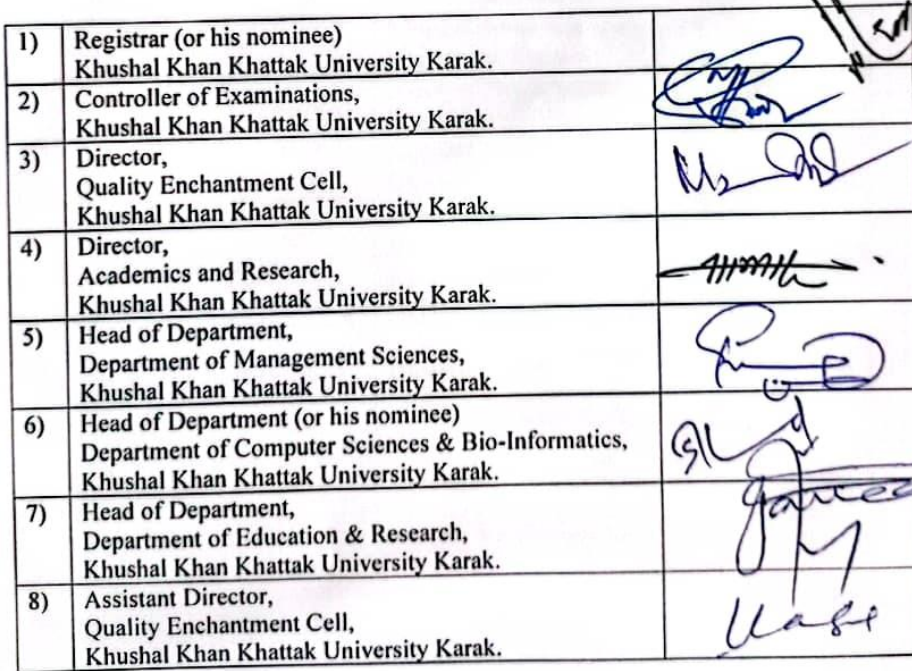 1) Registrar (or his nominee)
Khushal Khan Khattak University Karak.
2) Controller of Examinations,
Khushal Khan Khattak University Karak.
3) Director,
Quality Enchantment Cell,
Khushal Khan Khattak University Karak.
4) Director,
Academics and Research,
Khushal Khan Khattak University Karak.
5) Head of Department,
Department of Management Sciences,
Khushal Khan Khattak University Karak.
6) Head of Department (or his nominee)
Department of Computer Sciences & Bio-Informatics,
Khushal Khan Khattak University Karak.
7) Head of Department,
Department of Education & Research,
Khushal Khan Khattak University Karak.
8) Assistant Director,
Quality Enchantment Cell,
Khushal Khan Khattak University Karak.